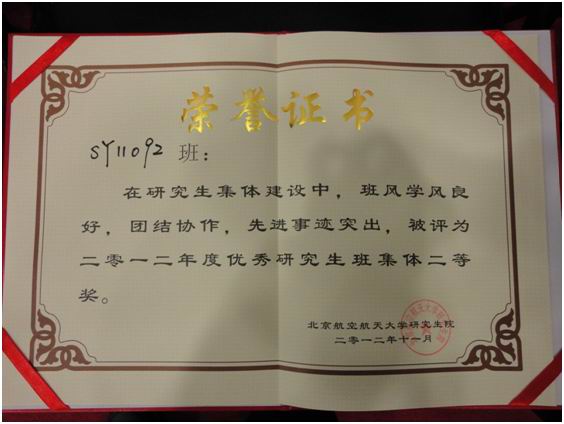 荣誉证书
SY11092 班：
在研究生集体建设中，班风学风良
好，团结协作，先进事迹突出，被评为
二零一二年度优秀研究生班集体二等
奖。
北京航空航天大学研究生院
二零一二年十一月